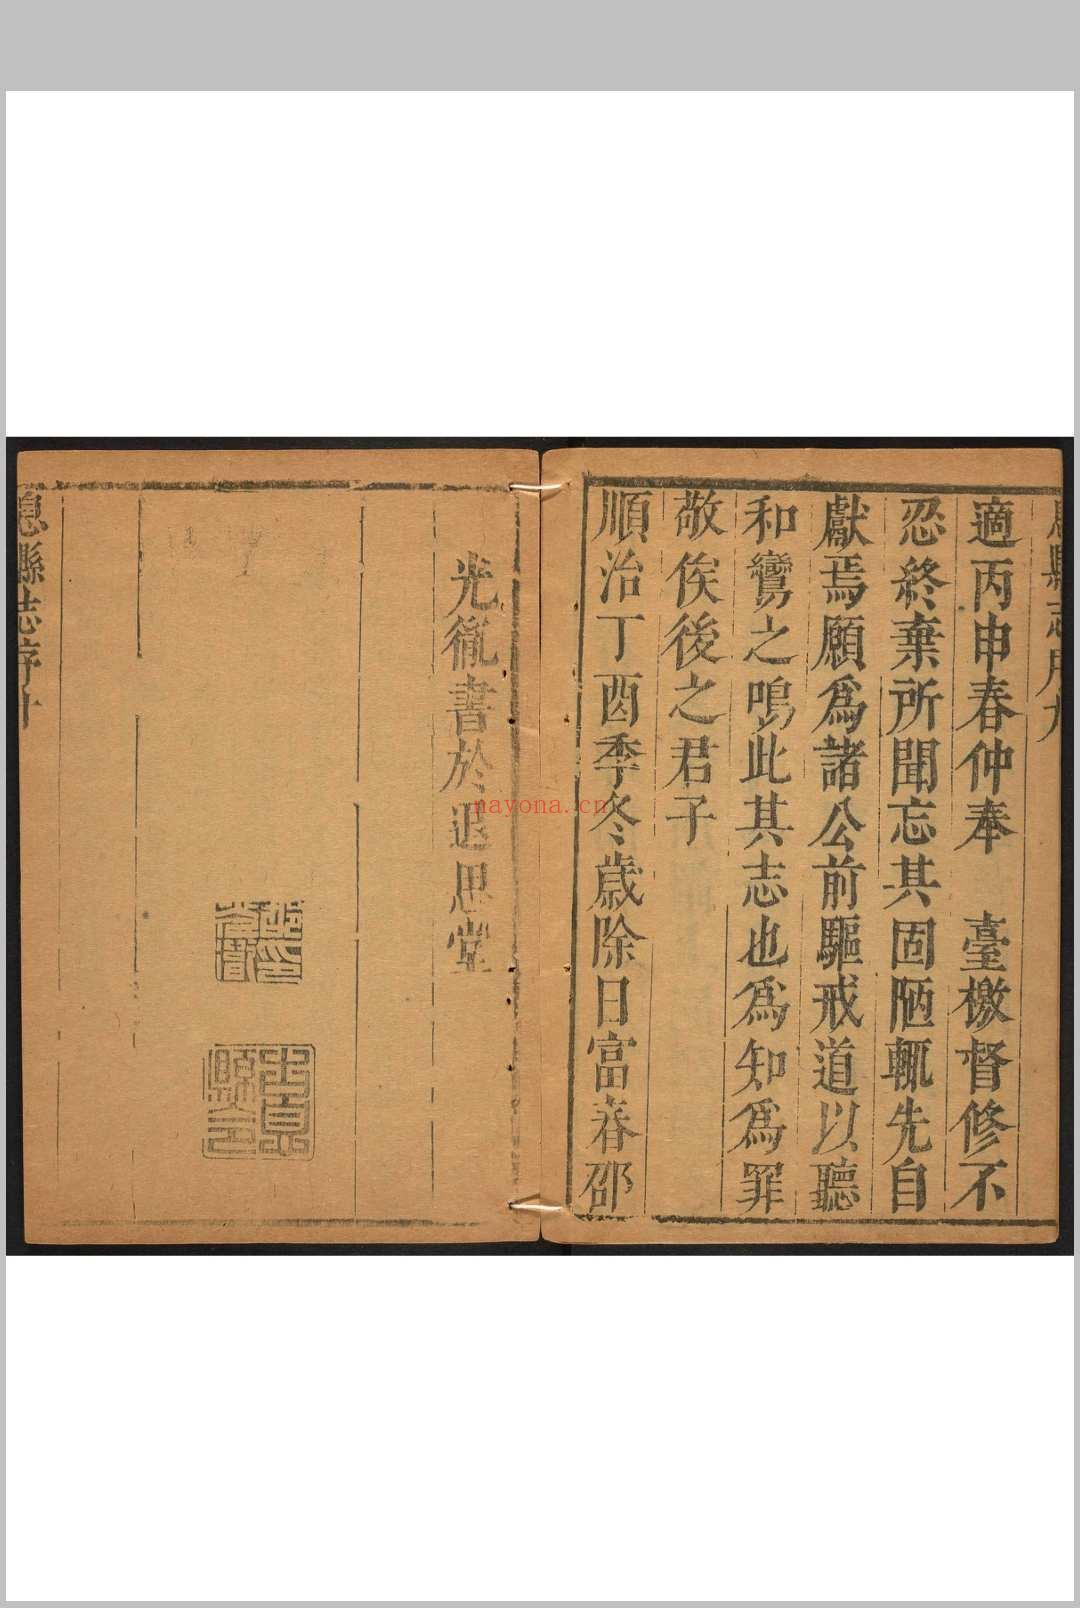 適丙申春仲奉　臺檄督修不
忍終棄所聞忘其固陋輒先自
獻焉願爲諸公前驅戒道以聽
和鸞之鳴此其志也爲知爲罪
敬俟後之君子
順治丁酉季冬歲除日富春邵
光胤書於退思堂
息縣志序十
nayona.cn